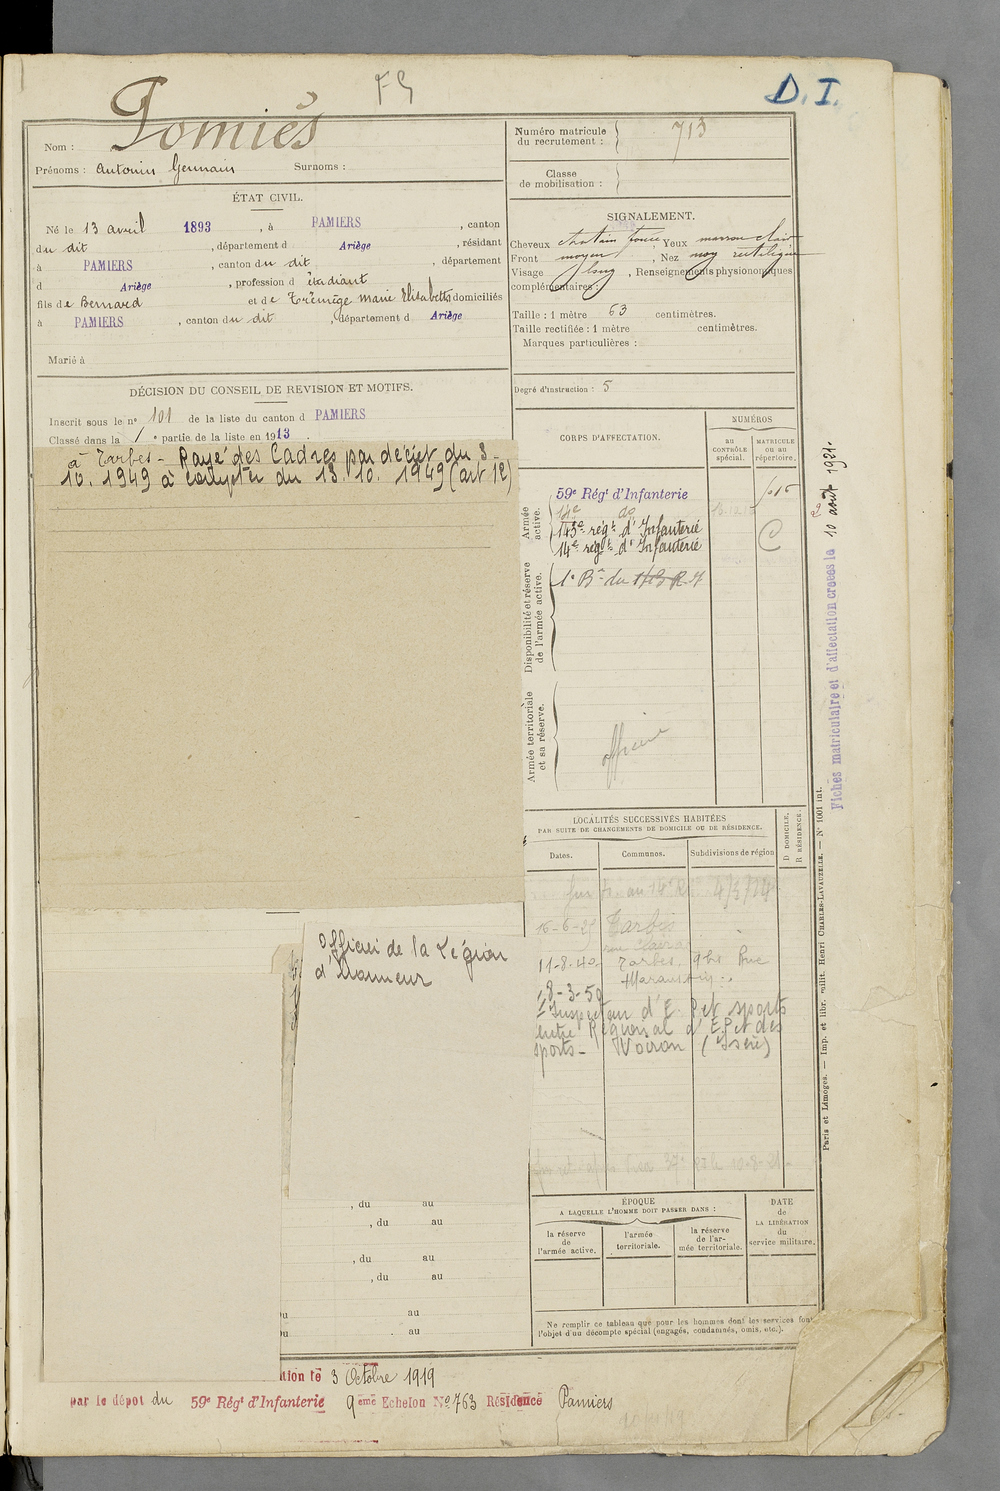 FS
D.I.
Nom : Pomiès
Prénoms : Antonin Germain Surnoms :
Numéro matricule
du recrutement : 713
Classe
de mobilisation :
ÉTAT CIVIL.
Né le 13 avril 1893, à PAMIERS, canton
du dit, département d Ariège, résidant
à PAMIERS, canton du dit, département
d Ariège, profession d étudiant
fils de Bernard et de Trémège Marie Elisabeth domiciliés
à PAMIERS, canton du dit, département d Ariège
Marié à
SIGNALEMENT.
Cheveux chatain foncé Yeux marron clair
Front moyen, Nez moy rectiligne
Visage long, Renseignements physionomiques
complémentaires :
Taille : 1 mètre 63 centimètres.
Taille rectifiée : 1 mètre centimètres.
Marques particulières :
Degré d'instruction : 5
DÉCISION DU CONSEIL DE REVISION ET MOTIFS.
Inscrit sous le n° 101 de la liste du canton d PAMIERS
Classé dans la 1e partie de la liste en 1913.
à Tarbes - Rayé des Cadres par décret du 3-
10. 1949 à compter du 13. 10. 1949 (art 12)
CORPS D'AFFECTATION.
NUMÉROS
au
CONTRÔLE
spécial.
MATRICULE
ou au
répertoire.
Armée
active.
59e Régt d'Infanterie
14e do
143e régt d'Infanterie
14e régt d'Infanterie
Disponibilité et réserve
de l'armée active.
Armée territoriale
et sa réserve.
officier
LOCALITÉS SUCCESSIVES HABITÉES
PAR SUITE DE CHANGEMENTS DE DOMICILE OU DE RÉSIDENCE.
D DOMICILE.
R RÉSIDENCE.
Dates.
Communes.
Subdivisions de région
16-6-25 Tarbes
11-8-40 Tarbes, 9 bis Rue
18-3-50
Inspecteur d'E. P et sports
Centre Régional d'E.P et des
sports - Voiron (Isère)
Officier de la Légion
d'Honneur
, du au
, du au
, du au
, du au
du au
du au
ÉPOQUE
A LAQUELLE L'HOMME DOIT PASSER DANS :
la réserve
de
l'armée active.
l'armée
territoriale.
la réserve
de l'ar-
mée territoriale.
DATE
de
LA LIBÉRATION
du
service militaire.
Ne remplir ce tableau que pour les hommes dont les services font
l'objet d'un décompte spécial (engagés, condamnés, omis, etc.).
tion le 3 Octobre 1919
par le dépôt du 59e Régt d'Infanterie 9ème Echelon No 763 Résidence Pamiers
Fiches matriculaire et d'affectation créées le 10 août 1921.
Paris et Limoges. — Imp. et libr. milit. Henri CHARLES-LAVAUZELLE. — N° 1001 int.